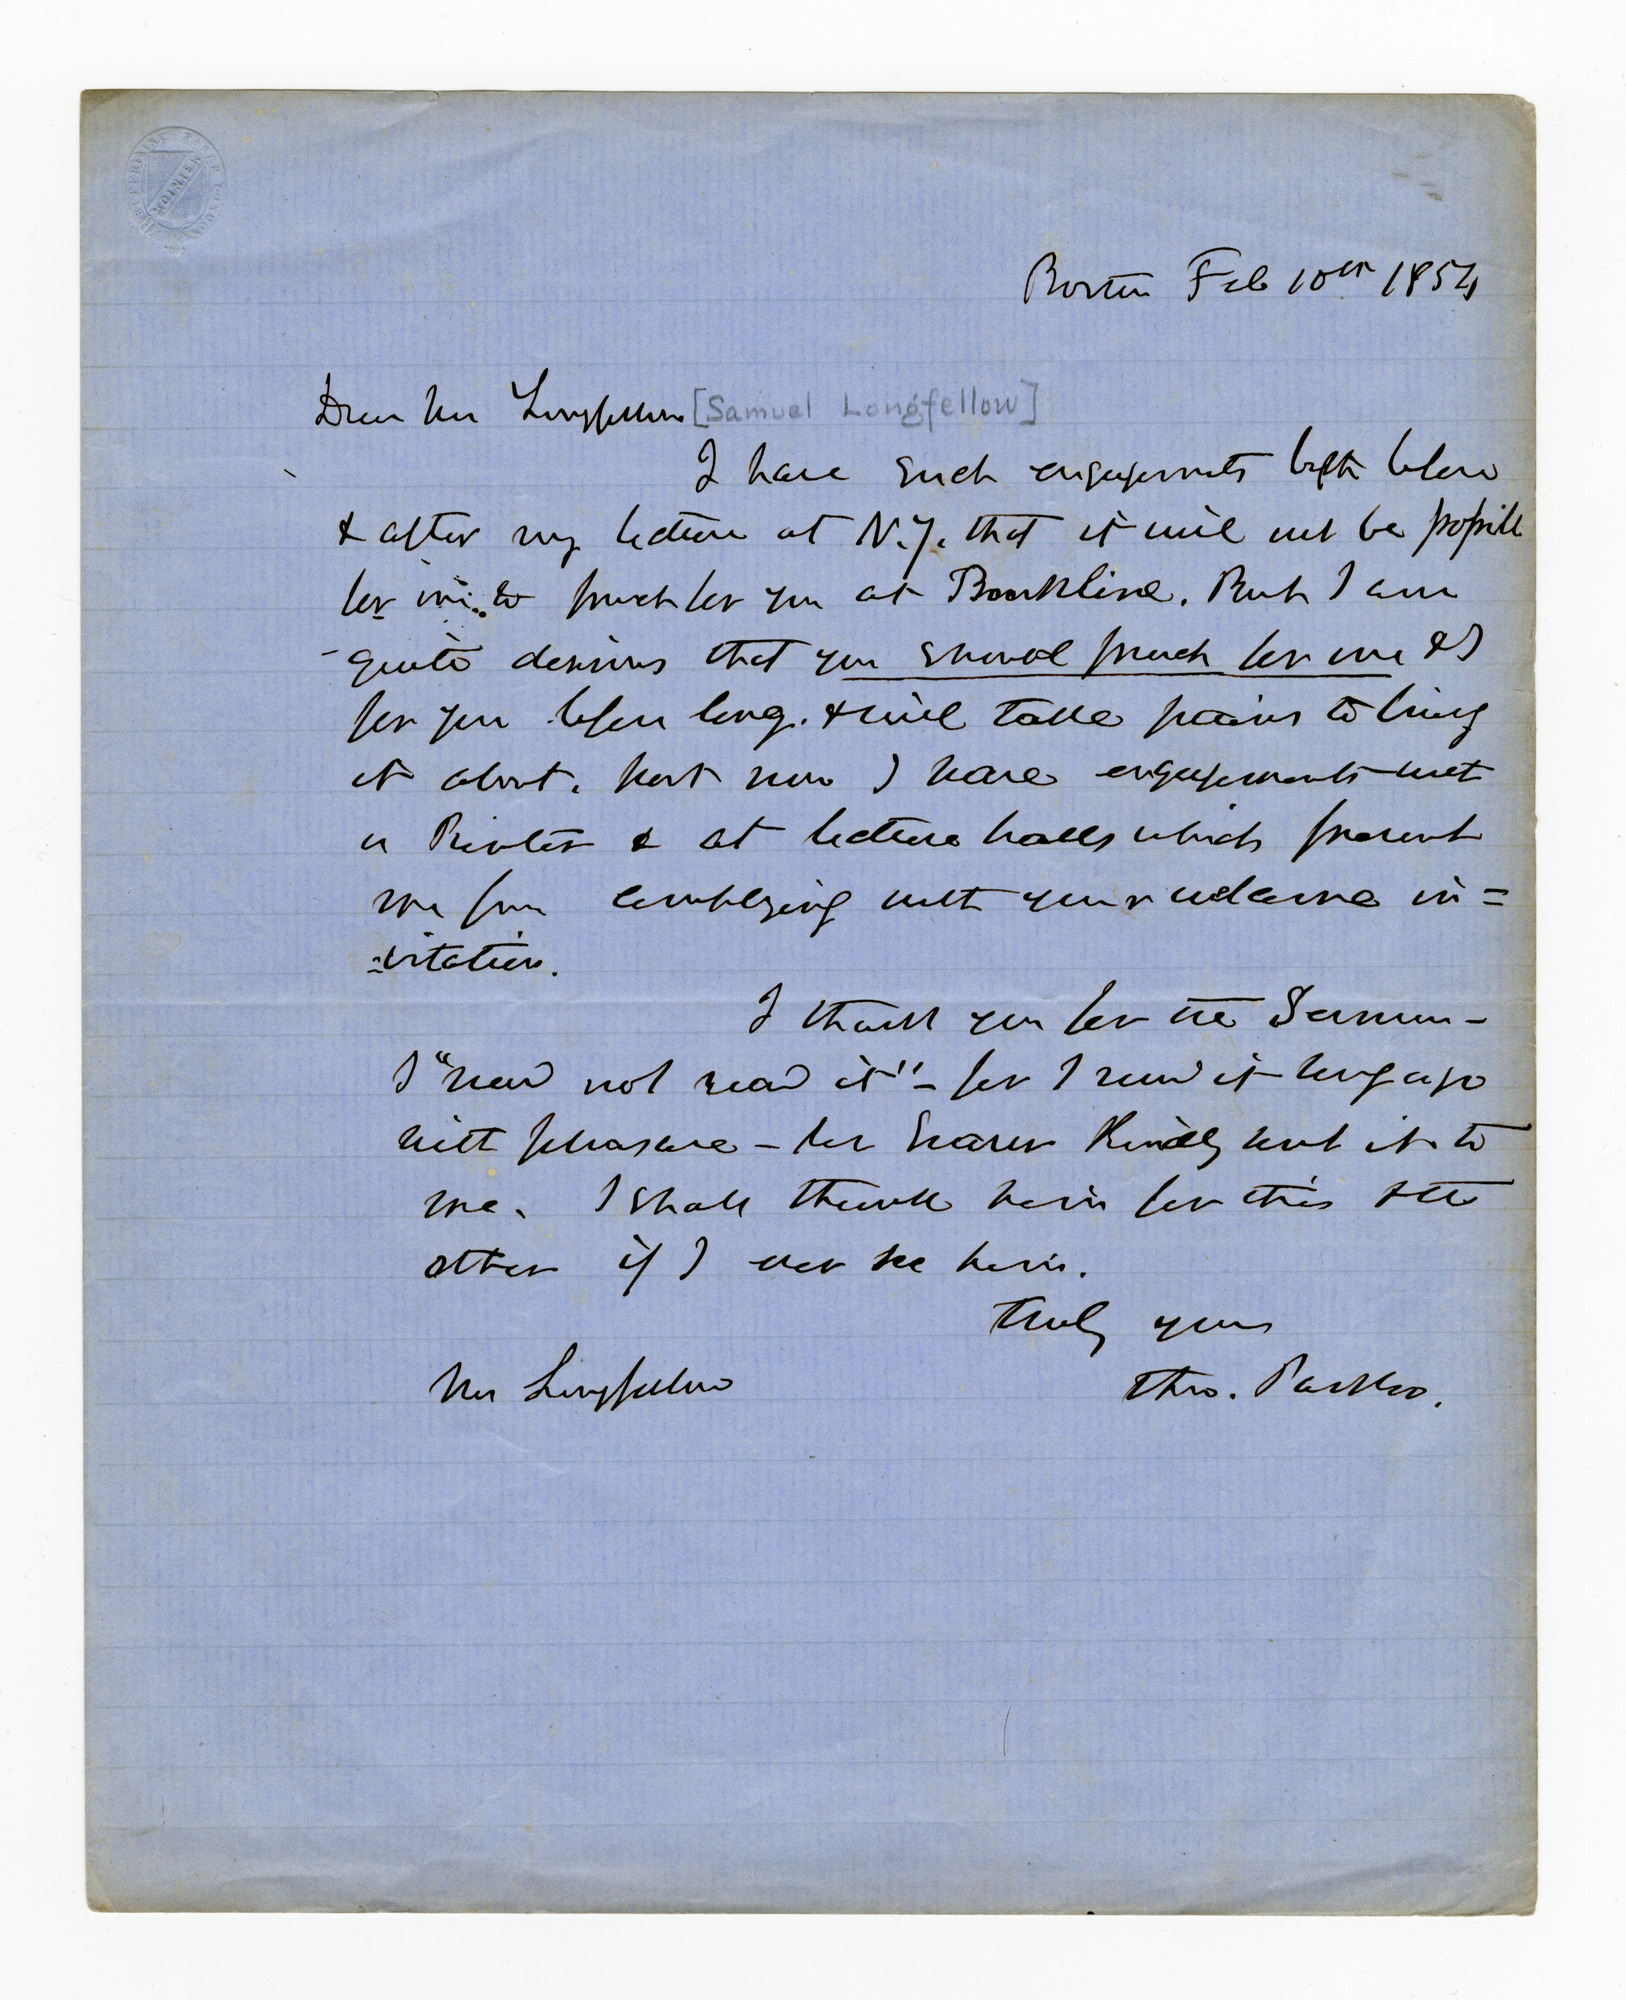 Boston Feb 10th 1854
Dear Mr Longfellow [Samuel Longfellow]
I have such engagements both before
& after my lecture at N.Y. that it will not be possible
for me to preach for you at Brookline. But I am
quite desirous that you should preach for me & I
for you before long. & will take pains to bring
it about. Just now I have engagements with
a Printer & at lecture halls which prevent
me from complying with your welcome in=
=vitation.
I thank you for the Sermon –
I "need not read it" – for I read it long ago
with pleasure – for kindly sent it to
me. I shall thank him for this & the
other if I ever see him.
Truly yours
Mr Longfellow Theo. Parker.